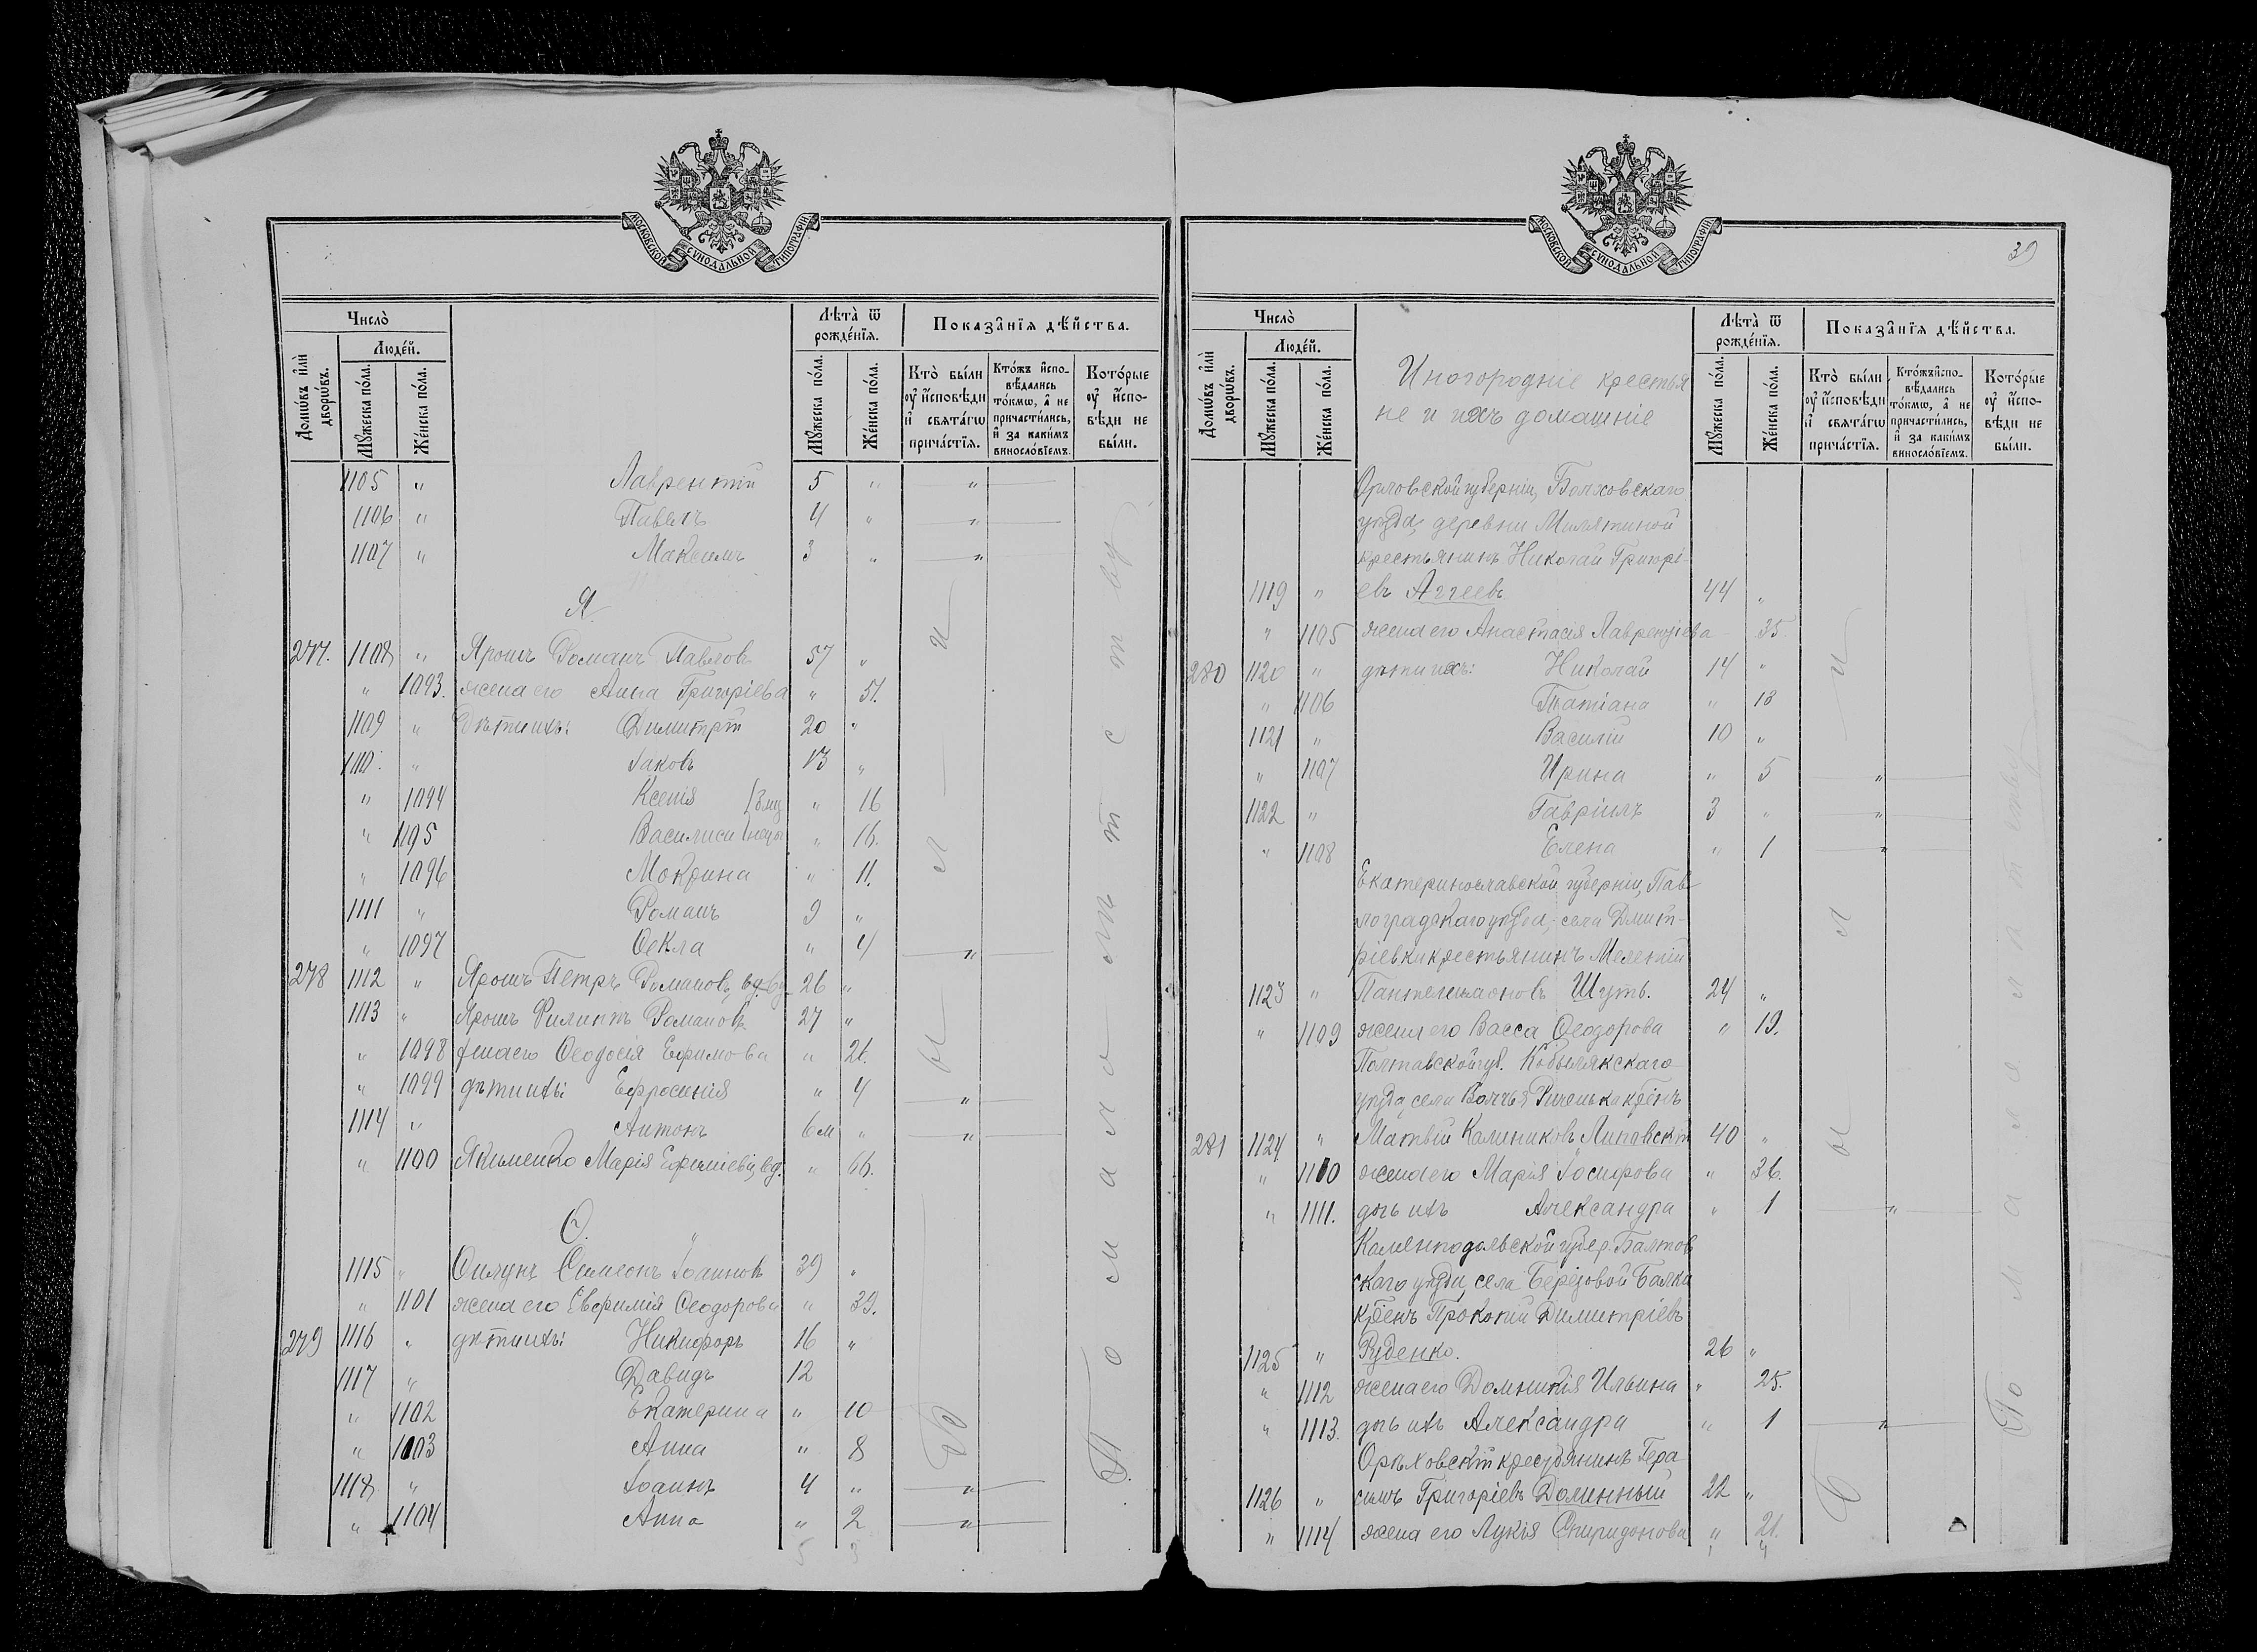 МОСКОВСКОЙ СѴНОДАЛЬНОЙ ТИПОГРАФІИ
Число̀
Домѡ́въ и҆лѝ дворѡ́въ.
Людє́й.
Мꙋ́жеска по́ла.
Же́нска по́ла.
Лѣ́та ѿ рожде́нїѧ.
Мꙋ́жеска по́ла.
Же́нска по́ла.
Показа̑нїѧ дѣ́йства.
Кто̀ бы́ли ᲂу҆ и҆сповѣ́ди и҆ свѧта́гѡ прича́стїѧ.
Кто́жъ и҆сповѣ́дались то́кмѡ, а҆ не причасти́лись, и҆ за каки́мъ винослов́їемъ.
Кото́рые ᲂу҆ и҆сповѣ́ди не бы́ли.
1105 " Лаврентій 5 " "
1106 " Павелъ 4 " "
1107 " Максимъ 3 " "
Я.
277. 1108 " Ярошъ Романъ Павловъ 57 "
" 1093. жена его Анна Григоріева " 51.
1109 " Дѣти ихъ: Димитрій 20 "
1110. " Іаковъ 13 "
" 1094 Ксенія " 16
" 1095 Василиса " 16.
" 1096 Мокрина " 11.
1111 " Романъ 9 "
" 1097 Ѳекла " 4 "
278 1112 " Ярошъ Петръ Романовъ, вд. 26 "
1113 " Ярошъ Филиппъ Романовъ 27 "
" 1098 жена его Ѳеодосія Ефимова " 26.
" 1099 дѣти ихъ: Ефросинія " 4 "
1114 " Антонъ 6 м " "
" 1100 Якименко Марія вд. " 66.
Ѳ.
1115 " Симеонъ Іоанновъ 39 "
" 1101 жена его Евфимія Ѳеодорова " 39.
279 1116 " дѣти ихъ: Никифоръ 16 "
1117 " Давидъ 12
" 1102 Екатерина " 10
" 1103 Анна " 8
1118 " Іоаннъ 4 " "
" 1104 Анна " 2 "
Были
По малолѣтству
МОСКОВСКОЙ СѴНОДАЛЬНОЙ ТИПОГРАФІИ
39
Число̀
Домѡ́въ и҆лѝ дворѡ́въ.
Людє́й.
Мꙋ́жеска по́ла.
Же́нска по́ла.
Иногородніе крестья
не и ихъ домашніе
Лѣ́та ѿ рожде́нїѧ.
Мꙋ́жеска по́ла.
Же́нска по́ла.
Показа̑нїѧ дѣ́йства.
Кто̀ бы́ли ᲂу҆ и҆сповѣ́ди и҆ свѧта́гѡ прича́стїѧ.
Кто́жъ и҆сповѣ́дались то́кмѡ, а҆ не причасти́лись, и҆ за каки́мъ винослов́їемъ.
Кото́рые ᲂу҆ и҆сповѣ́ди не бы́ли.
Орловской губерніи, Болховскаго
уѣзда, деревни Милятиной
крестьянинъ Николай Григорі-
1119 " евъ Аггеевъ 44 "
" 1105 жена его Анастасія Лаврентіева 35
280 1120 " дѣти ихъ: Николай 14 "
" 1106 Татіана " 13
1121 " Василій 10 "
" 1107 Ирина " 5 "
1122 " Гавріилъ 3 " "
" 1108 Елена " 1 "
Екатеринославской губерніи, Пав-
лоградскаго уѣзда, села Дмит-
ріевки крестьянинъ Мелетій
1123 " Пантелеимоновъ Шуть. 24 "
" 1109 жена его Васса Ѳеодорова " 19.
Полтавской губ. Кобылякскаго
уѣзда, села
281 1124 " Матвій Калиниковъ 40 "
" 1110 жена его Марія Іосифова " 36.
" 1111. дочь ихъ Александра " 1 "
Каменподольской губер. Балтов
скаго уѣзда, села Березовой Балки
кр-енъ Прокопій Димитріевъ
1125 " Руденко. 26 "
" 1112 жена его Домникія Ильина " 25.
" 1113. дочь ихъ Александра " 1 "
Орѣховскій крестьянинъ Гера
1126 " симъ Григоріевъ Долинный 22 "
" 1114 жена его Лукія Спиридонова " 21.
Были
По малолѣтству